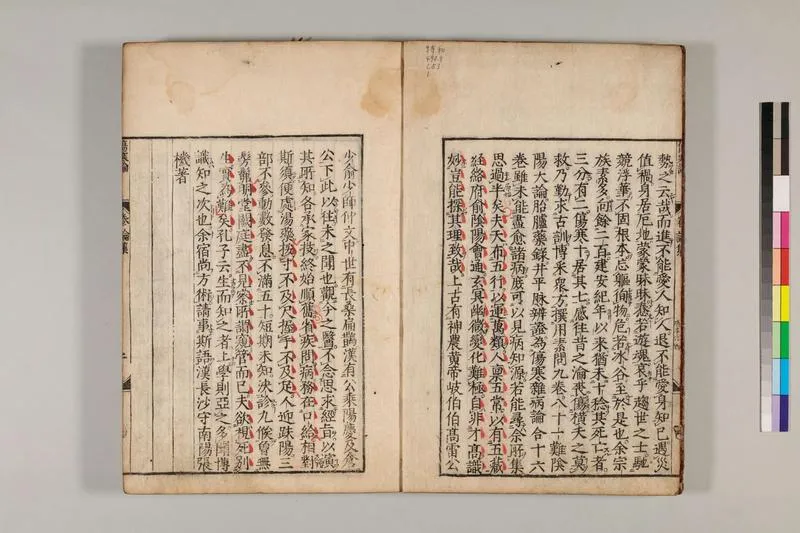 勢之云哉而進不能愛人知人退不能愛身知己遇災
值禍身居厄地蒙蒙昧昧惷若遊魂哀乎趨世之士馳
競浮華不固根本忘軀徇物危若氷谷至於是也余宗
族素多向餘二百建安紀年以來猶未十稔其死亡者
三分有二傷寒十居其七感往昔之淪喪傷橫夭之莫
救乃勤求古訓博采衆方撰用素問九卷八十一難陰
陽大論胎臚藥錄并平脉辨證為傷寒雜病論合十六
卷雖未能盡愈諸病庶可以見病知源若能尋余所集
思過半矣夫天布五行以運萬類人稟五常以有五藏
經絡府俞陰陽會通玄冥幽微變化難極自非才髙識
妙豈能探其理致哉上古有神農黃帝岐伯伯髙雷公
少俞少師仲文中世有長桑扁鵲漢有公乘陽慶及倉
公下此以往未之聞也觀今之醫不念思求經旨以演
其所知各承家技終始順舊省疾問病務在口給相對
斯須便處湯藥按寸不及尺握手不及足人迎趺陽三
部不參動數發息不滿五十短期未知決診九候曾無
髣髴明堂闕庭盡不見察所謂窺管而已夫欲視死別
生實為難矣孔子云生而知之者上學則亞之多聞博
識知之次也余宿尚方術請事斯語漢長沙守南陽張
機著